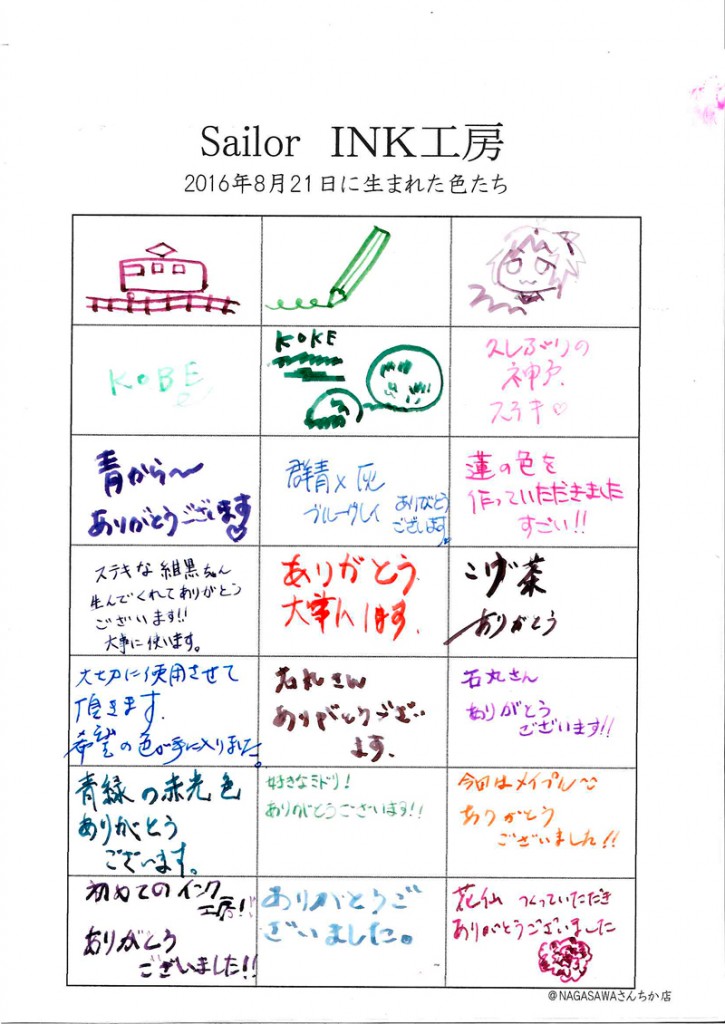 Sailor INK工房
2016年8月21日に生まれた色たち
KOBE
KOKE
久しぶりの
神戸
ステキ♡
青から〜
ありがとうございます♡
群青×灰
ブルーグレイ
ありがとう
ございます。
蓮の色を
作っていただきました
すごい!!
ステキな 紺黒ちゃん
生んでくれてありがとう
ございます!!
大事に使います。
ありがとう
大事にします。
こげ茶
ありがとう
大切に使用させて
頂きます.
希望の色が手に入りました。
石丸さん
ありがとうござい
ます.
石丸さん
ありがとう
ございます!!
青緑の赤光色
ありがとう
ございます。
好きなミドリ!
ありがとうございます!!
今回はメイプル〜
ありがとう
ございました!!
初めてのインク
工房!!
ありがとう
ございました!!
ありがとうご
ざいました。
花仙 つくっていただき
ありがとうございました
@NAGASAWAさんちか店